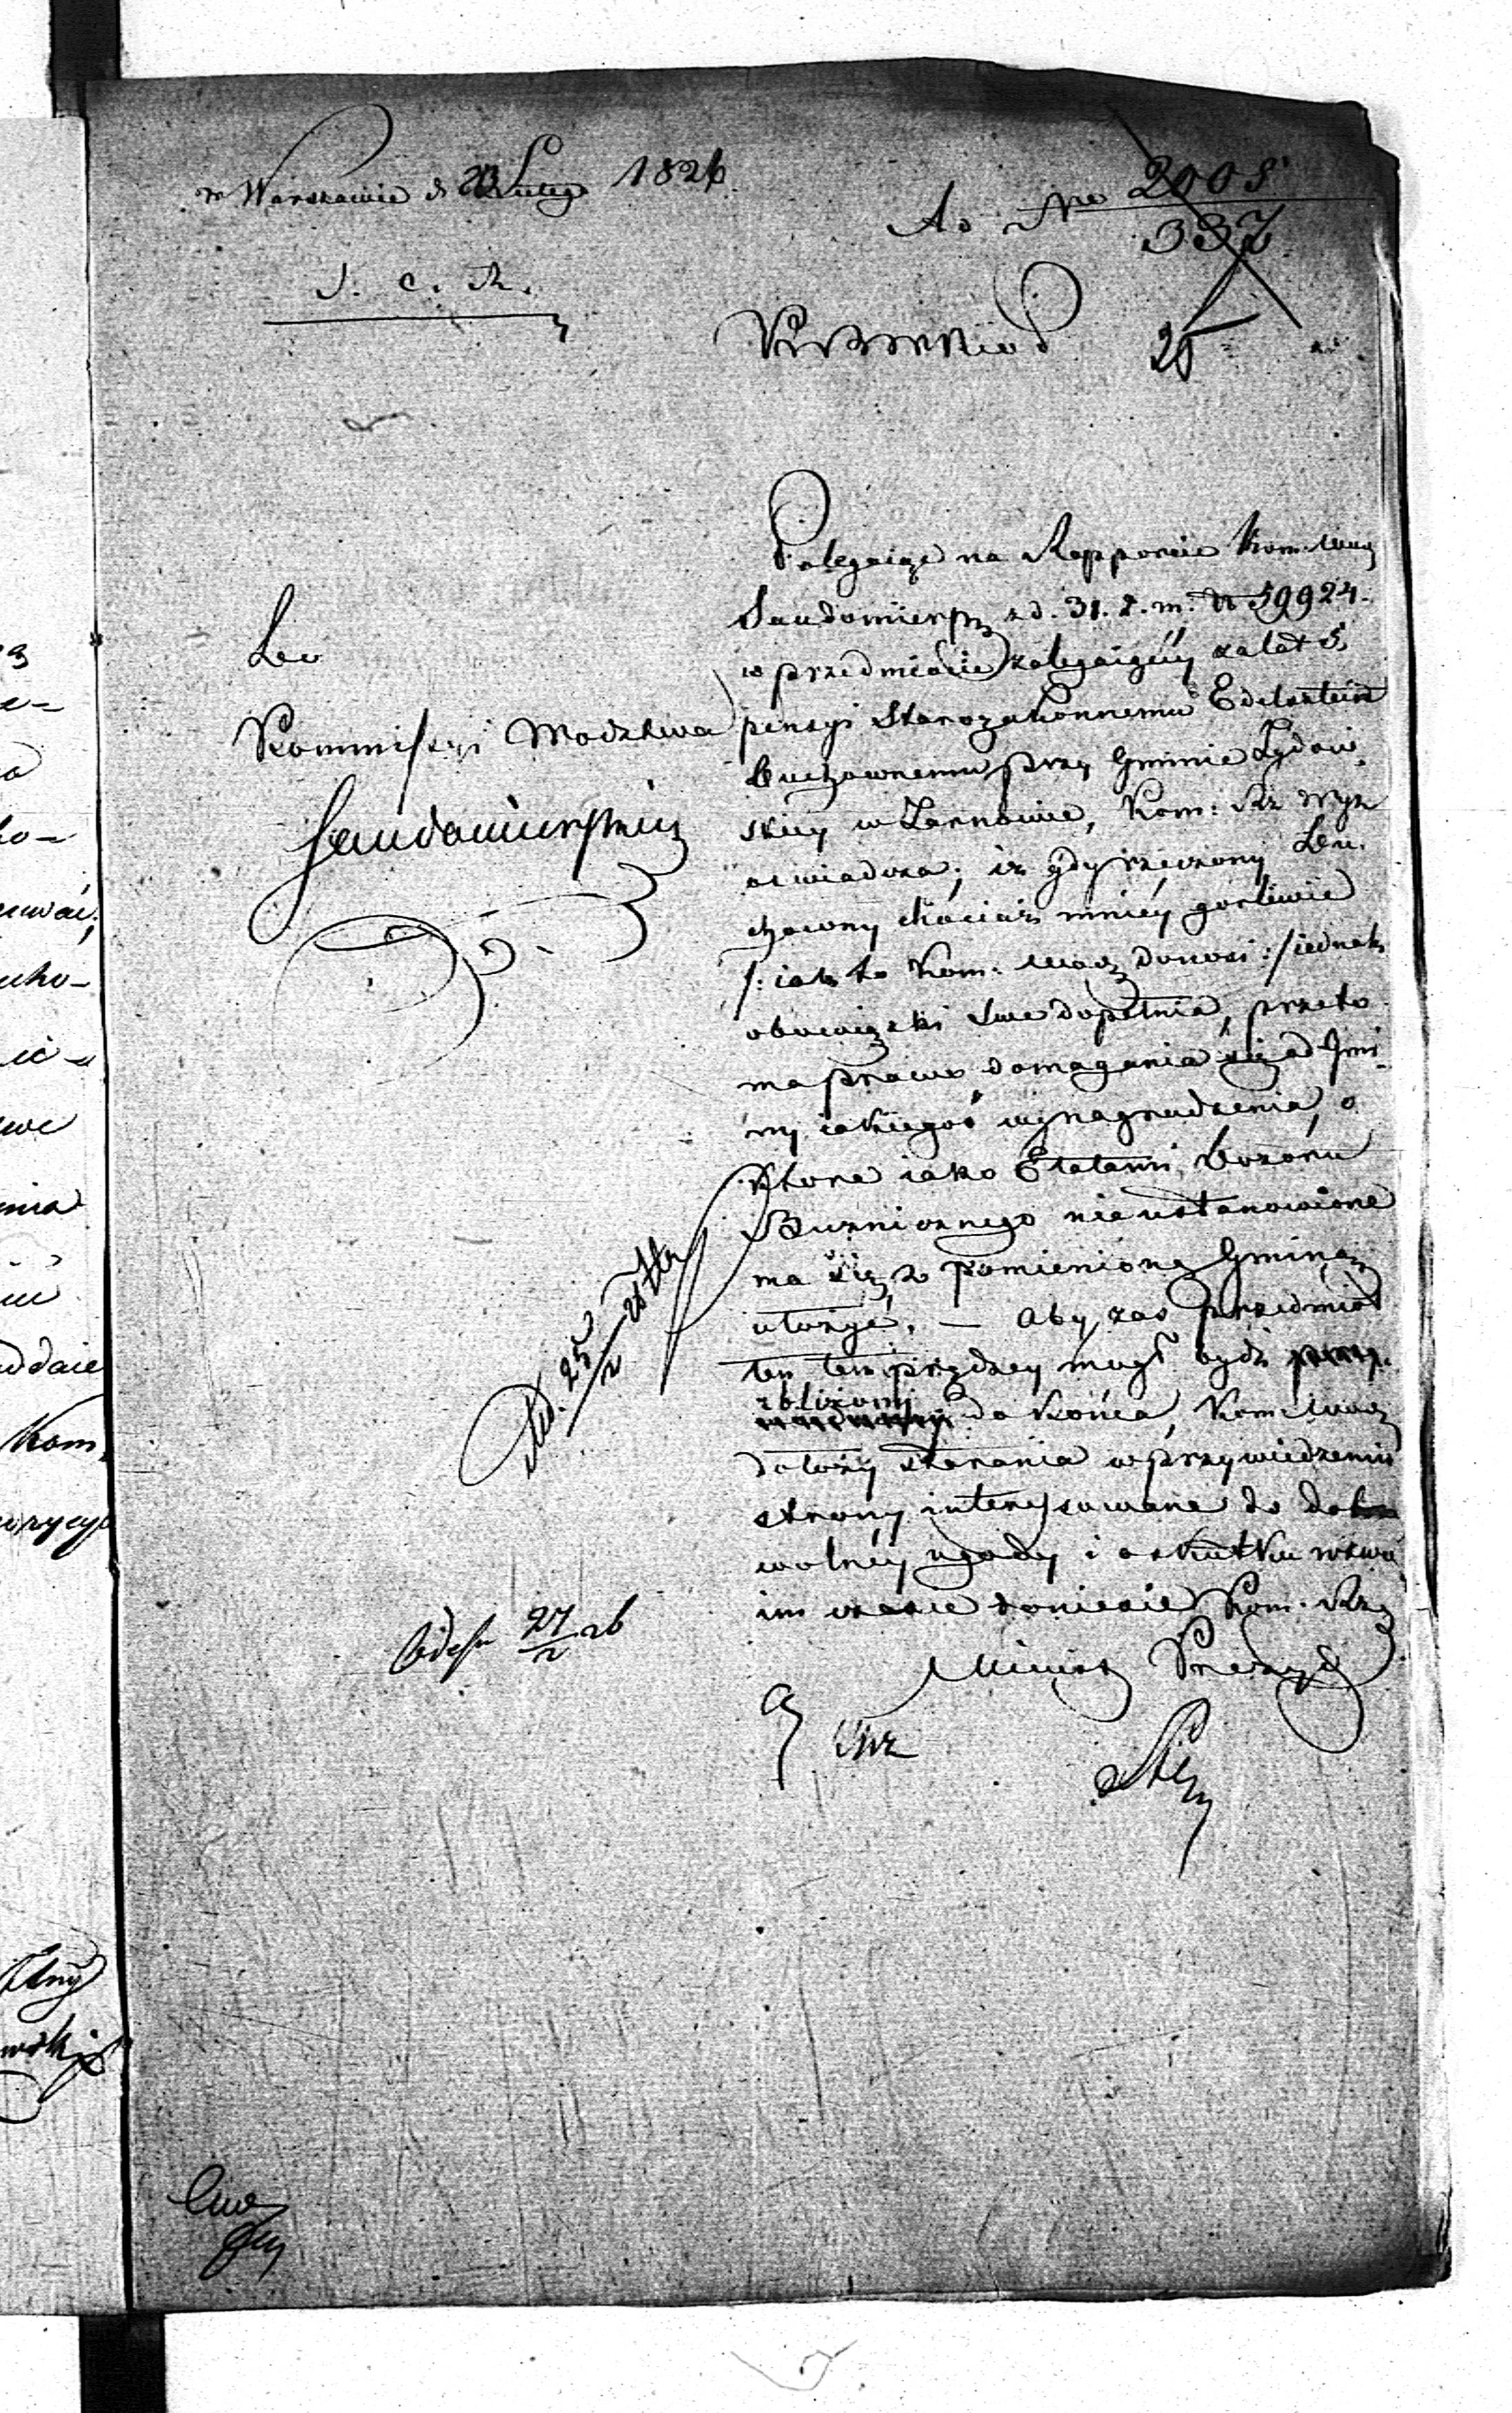 w Warszawie d 23 Lutego 1826.
Ad Nro 2005
337
25
Do
Kommissyi Wodztwa
Sandomierskiey
Polegaiąc na Rapporcie Kom: Woiew
Sandomierskiey z d. 31. X. m. N 59924.
w przedmiocie zalegaiącey za lat 5
pensyi Starozakonnemu Edelsztein
Duchownemu przy Gminie Żydow
skiey w Żarnowie, Kom: Rz Wyz
oswiadcza, iz gdy rzeczony Du
chowny chociaż mniey gorliwie
/: iak to Kom: Woiew donosi :/ iednak
obowiązki swe dopełnia, przeto
ma prawo domagania się od Gmi
ny iakiegoś wynagrodzenia, o
które iako Etatami Dozoru
Bużnicznego nieustanowione
ma się z pomienioną Gminą
ułożyć. — Aby zas przedmiot
ten tem prędzey mógł bydź
zbliżony do końca, Kom: Woiew
dołoży starania w przywiedzeniu
strony interessowane do dobro
wolney ugody i o skutku w swo
im czasie doniesie Kom: Rz
Minist Prezyd
25/2
27/2 26